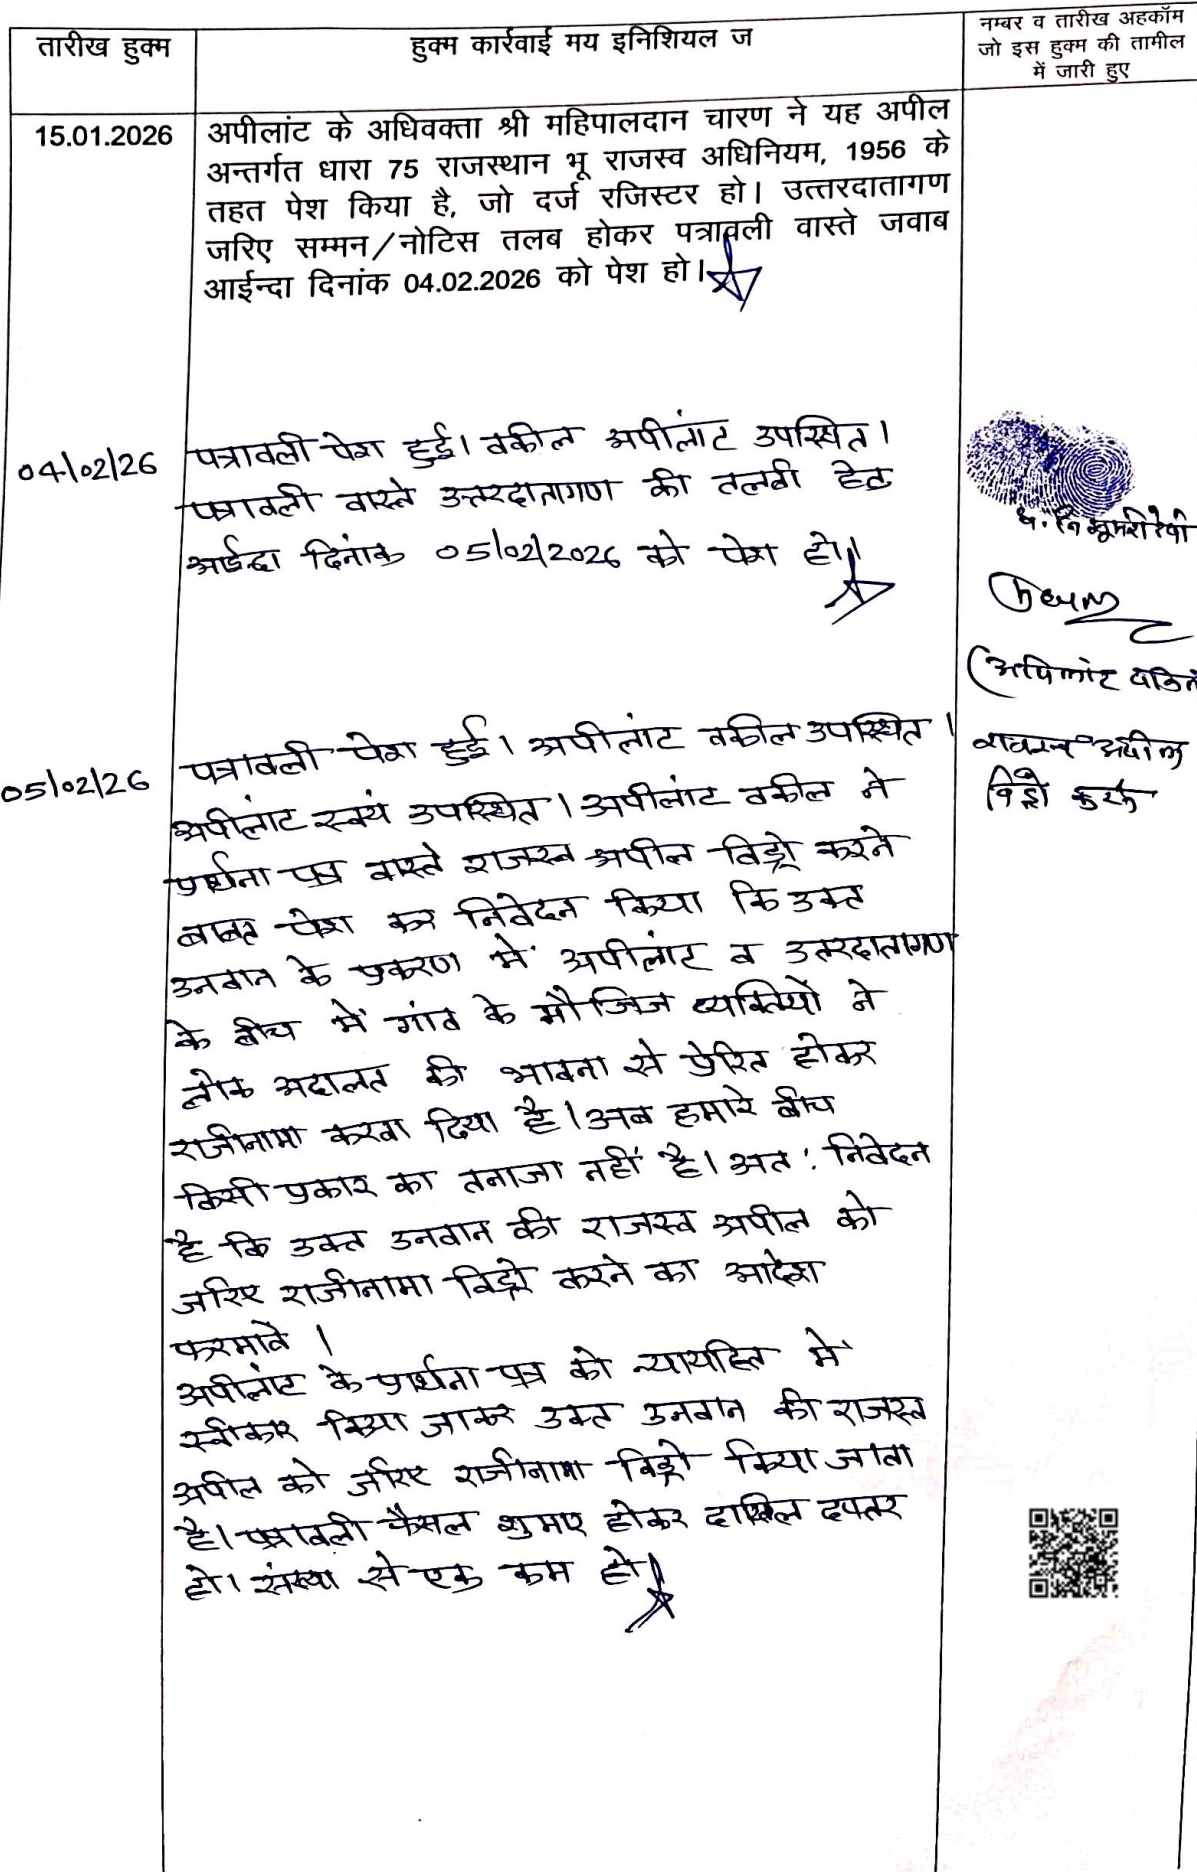 तारीख हुक्म
हुक्म कार्रवाई मय इनिशियल ज
नम्बर व तारीख अहकॉम
जो इस हुक्म की तामील
में जारी हुए
15.01.2026
अपीलांट के अधिवक्ता श्री महिपालदान चारण ने यह अपील
अन्तर्गत धारा 75 राजस्थान भू राजस्व अधिनियम, 1956 के
तहत पेश किया है, जो दर्ज रजिस्टर हो। उत्तरदातागण
जरिए सम्मन/नोटिस तलब होकर पत्रावली वास्ते जवाब
आईन्दा दिनांक 04.02.2026 को पेश हो।
04/02/26
पत्रावली पेश हुई। वकील अपीलांट उपस्थित।
पत्रावली वास्ते उत्तरदातागण की तलबी हेतु
आईंदा दिनांक 05/02/2026 को पेश हो।
(अपिलांट
05/02/26
पत्रावली पेश हुई। अपीलांट वकील उपस्थित।
अपीलांट स्वयं उपस्थित। अपीलांट वकील ने
प्रार्थना पत्र वास्ते राजस्व अपील विड्रो करने
बाबत पेश कर निवेदन किया कि उक्त
उनवान के प्रकरण में अपीलांट व उत्तरदातागण
के बीच में गांव के मौजिज व्यक्तियों ने
लोक अदालत की भावना से प्रेरित होकर
राजीनामा करवा दिया है। अब हमारे बीच
किसी प्रकार का तनाजा नहीं है। अत: निवेदन
है कि उक्त उनवान की राजस्व अपील को
जरिए राजीनामा विड्रो करने का आदेश
फरमावे।
अपीलांट के प्रार्थना पत्र को न्यायहित में
स्वीकार किया जाकर उक्त उनवान की राजस्व
अपील को जरिए राजीनामा विड्रो किया जाता
है। पत्रावली फैसल शुमार होकर दाखिल दफ्तर
हो। संख्या से एक कम हो।
अपील
विड्रो